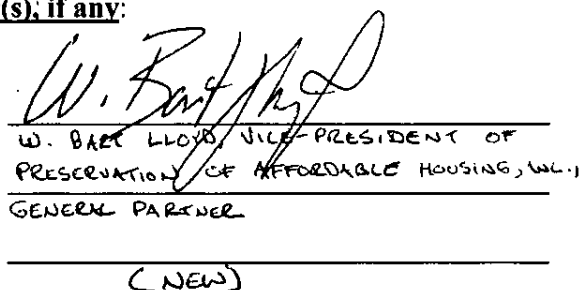 (s), if any:
W. Bart Lloyd
W. BART LLOYD, VICE-PRESIDENT OF
PRESERVATION OF AFFORDABLE HOUSING, INC.,
GENERAL PARTNER
(NEW)